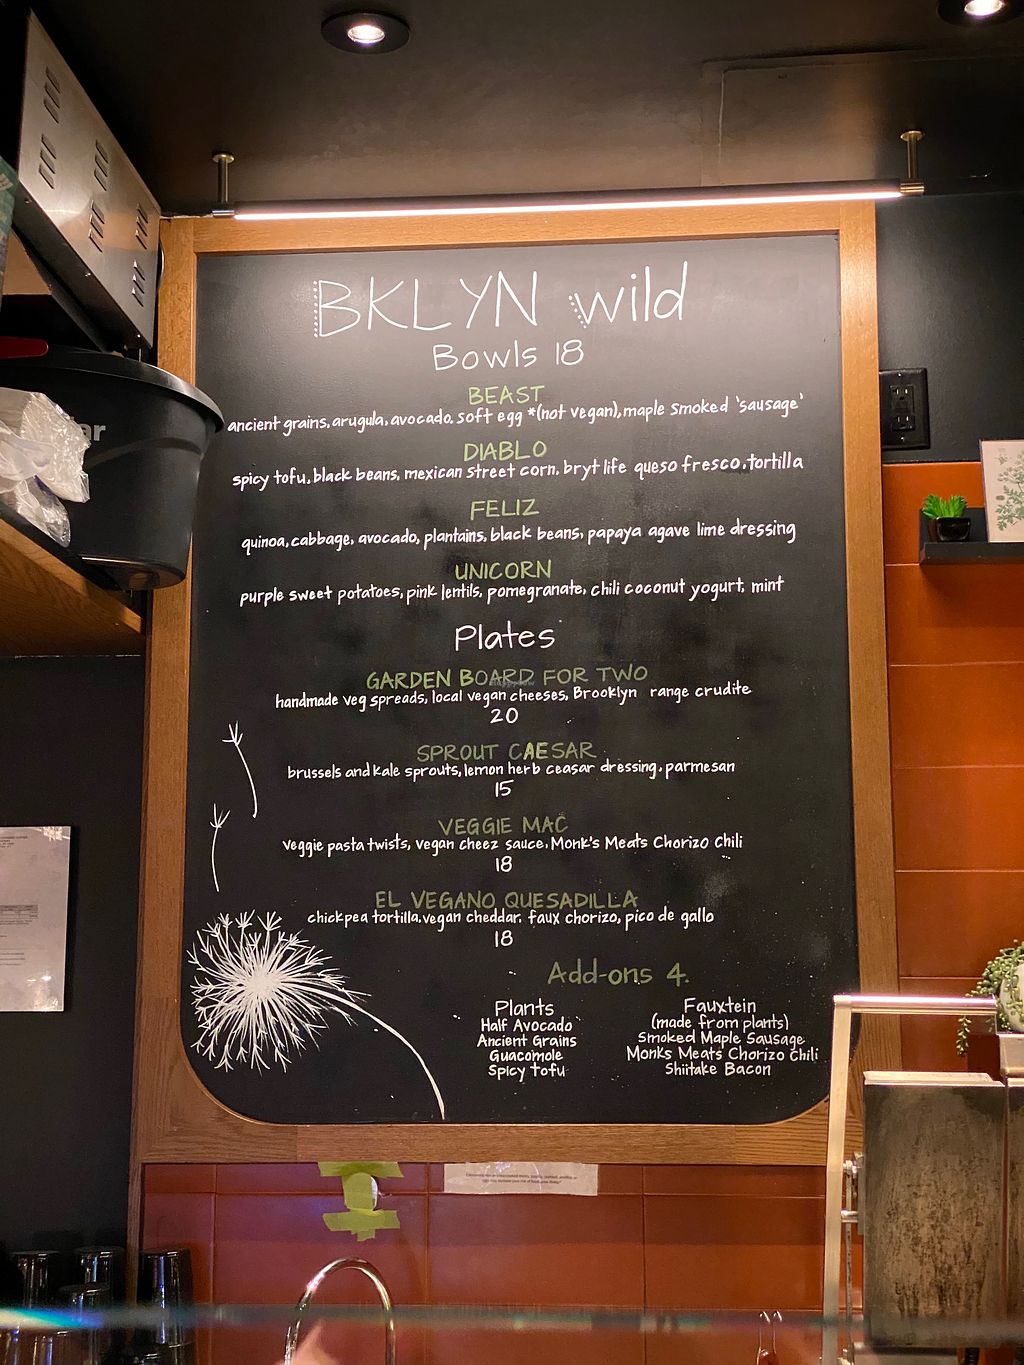 BKLYN wild
Bowls 18
BEAST
ancient grains, arugula, avocado, soft egg *(not vegan), maple smoked 'sausage'
DIABLO
spicy tofu, black beans, mexican street corn, bryt life queso fresco, tortilla
FELIZ
quinoa, cabbage, avocado, plantains, black beans, papaya agave lime dressing
UNICORN
purple sweet potatoes, pink lentils, pomegranate, chili coconut yogurt, mint
Plates
GARDEN BOARD FOR TWO
handmade veg spreads, local vegan cheeses, Brooklyn range crudite
20
SPROUT CAESAR
brussels and kale sprouts, lemon herb ceasar dressing, parmesan
15
VEGGIE MAC
veggie pasta twists, vegan cheez sauce, Monk's Meats Chorizo Chili
18
EL VEGANO QUESADILLA
chickpea tortilla, vegan cheddar, faux chorizo, pico de gallo
18
Add-ons 4.
Plants
Half Avocado
Ancient Grains
Guacomole
Spicy Tofu
Fauxtein
(made from plants)
Smoked Maple Sausage
Monks Meats Chorizo Chili
Shiitake Bacon
ar